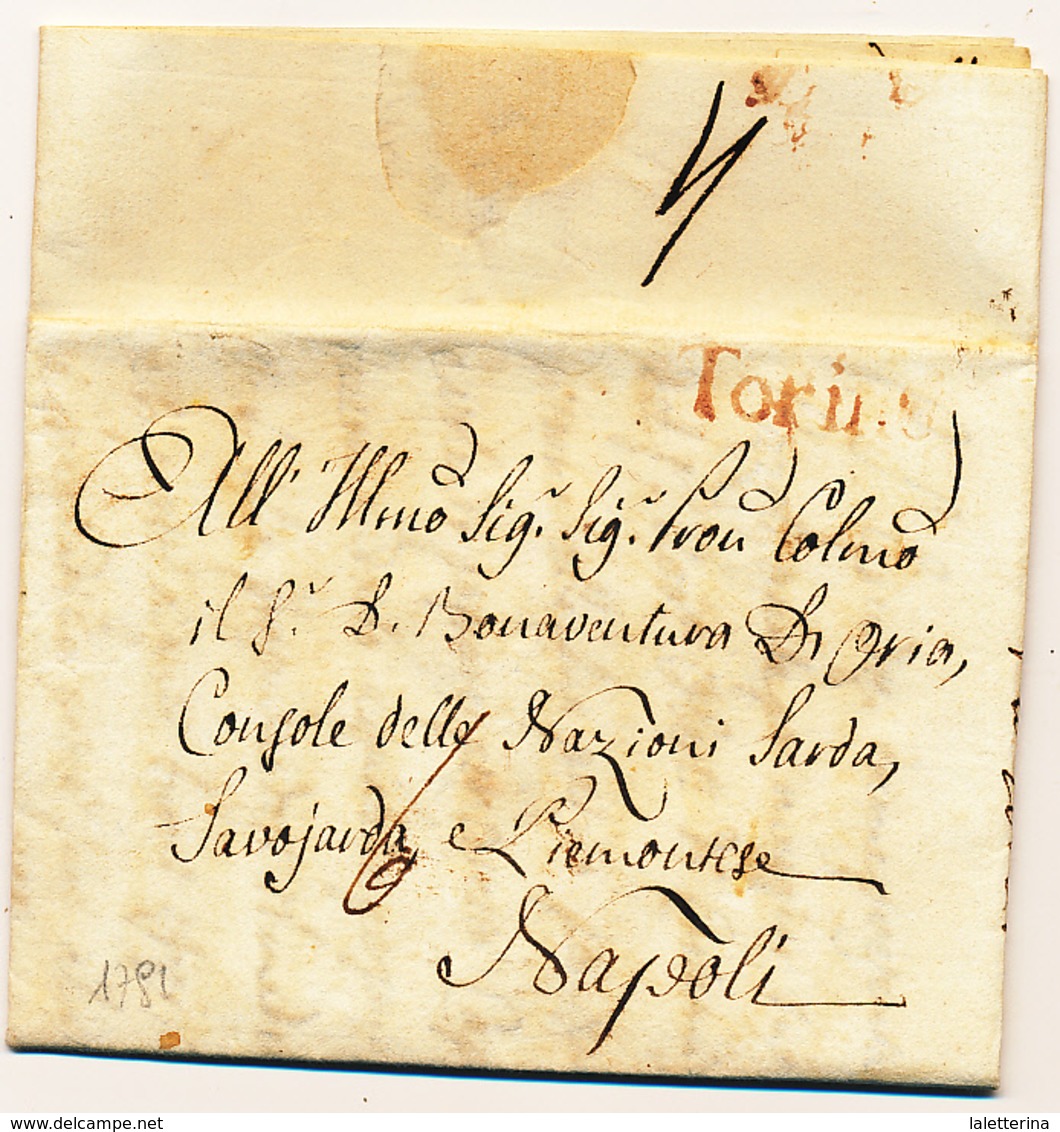 Torino
All' Illmo Sig.r Sig.r Pron Colmo
il S.r D. Bonaventura D'Oria,
Console delle Nazioni Sarda,
Savojarda, e Piemontese
6
Napoli
delcampe.net
laletterina